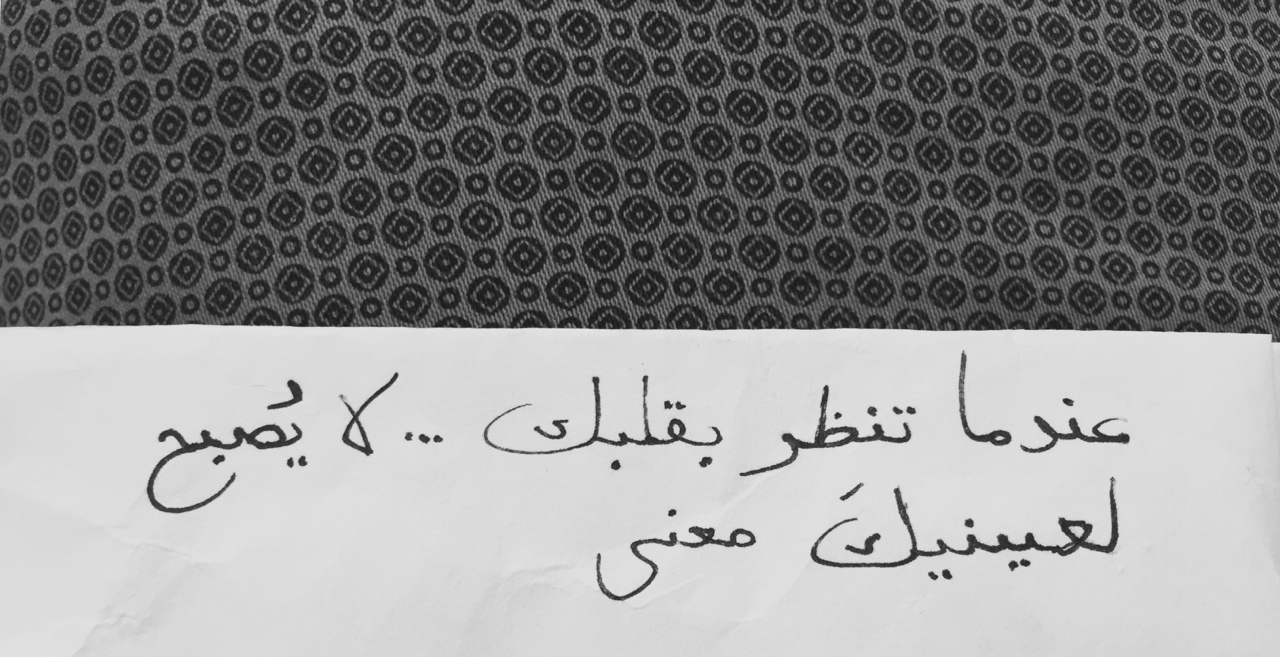 عندما تنظر بقلبك ... لا يُصبح
لعينيكَ معنى